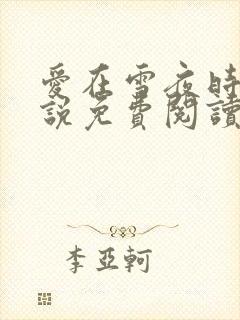 愛在雪夜時
說免費閱讀
李亞軻